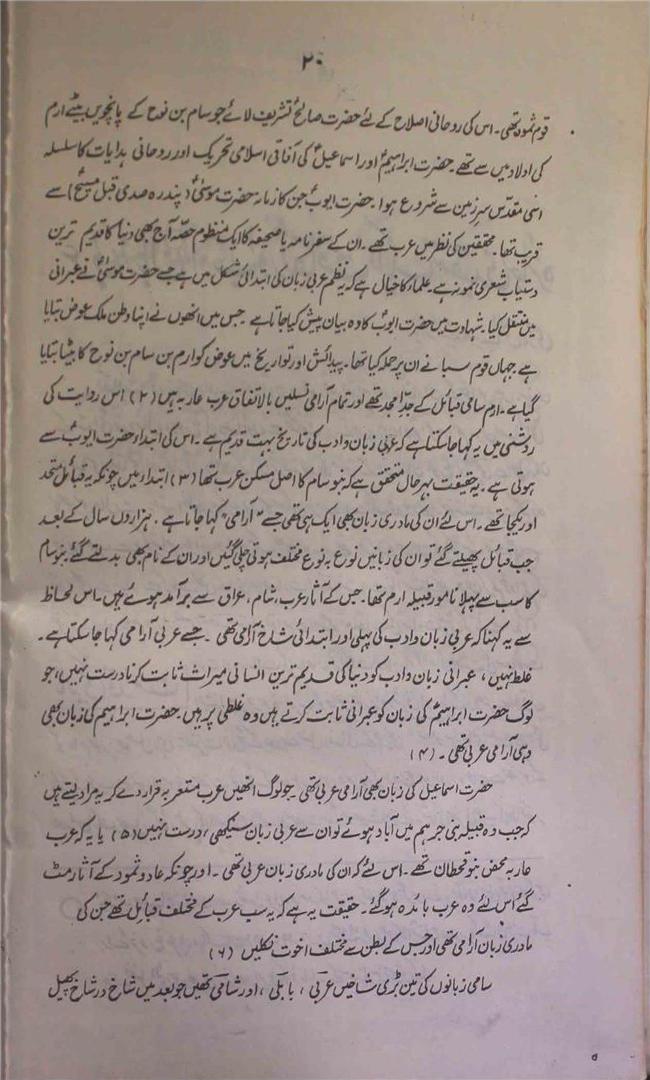 ۲۰
قوم ثمود تھی۔ اس کی روحانی اصلاح کے لئے حضرت صالحؑ تشریف لائے جو سام بن نوح کے پانچویں بیٹے ارم
کی اولاد میں سے تھے۔ حضرت ابراہیمؑ اور اسماعیلؑ کی آفاقی اسلامی تحریک اور روحانی ہدایات کا سلسلہ
اسی مقدّس سرزمین سے شروع ہوا۔ حضرت ایوبؑ جن کا زمانہ حضرت موسیٰؑ (پندرہ صدی قبل مسیحؑ) سے
قریب تھا۔ محققین کی نظر میں عرب تھے۔ ان کے سفر نامہ یا صحیفہ کا ایک منظوم حصّہ آج بھی دنیا کا قدیم ترین
دستیاب شعری نمونہ ہے۔ علماء کا خیال ہے کہ یہ نظم عربی زبان کی ابتدائی شکل میں ہے جسے حضرت موسیٰؑ نے عبرانی
میں منتقل کیا۔ شہادت میں حضرت ایوبؑ کا وہ بیان پیش کیا جاتا ہے۔ جس میں انھوں نے اپنا وطن ملک عوض بتایا
ہے جہاں قوم سبا نے ان پر حملہ کیا تھا۔ پیدائش اور تواریخ میں عوض کو ارم بن سام بن نوح کا بیٹا بتایا
گیا ہے۔ ارم سامی قبائل کے جدِّ امجد تھے اور تمام آرامی نسلیں بالاتفاق عرب عاربہ ہیں (۲) اس روایت کی
روشنی میں یہ کہا جا سکتا ہے کہ عربی زبان و ادب کی تاریخ بہت قدیم ہے۔ اس کی ابتداء حضرت ایوبؑ سے
ہوتی ہے۔ یہ حقیقت بہرحال متحقق ہے کہ بنو سام کا اصل مسکن عرب تھا (۳) ابتداء میں چونکہ یہ قبائل متحد
اور یکجا تھے۔ اس لئے ان کی مادری زبان بھی ایک ہی تھی جسے "آرامی" کہا جاتا ہے۔ ہزاروں سال کے بعد
جب قبائل پھیلتے گئے تو ان کی زبانیں نوع بہ نوع مختلف ہوتی چلی گئیں اور ان کے نام بھی بدلتے گئے۔ بنو سام
کا سب سے پہلا نامور قبیلہ ارم تھا۔ جس کے آثار عرب، شام، عراق سے برآمد ہوئے ہیں۔ اس لحاظ
سے یہ کہنا کہ عربی زبان و ادب کی پہلی اور ابتدائی شاخ آرامی تھی۔ جسے عربی آرامی کہا جا سکتا ہے۔
غلط نہیں، عبرانی زبان و ادب کو دنیا کی قدیم ترین انسانی میراث ثابت کرنا درست نہیں، جو
لوگ حضرت ابراہیمؑ کی زبان کو عبرانی ثابت کرتے ہیں وہ غلطی پر ہیں۔ حضرت ابراہیم کی زبان بھی
وہی آرامی عربی تھی۔ (۴)
حضرت اسماعیل کی زبان بھی آرامی عربی تھی۔ جو لوگ انھیں عرب متعربہ قرار دے کر یہ مراد لیتے ہیں
کہ جب وہ قبیلہ بنی جرہم میں آباد ہوئے تو ان سے عربی زبان سیکھی، درست نہیں (۵) یا یہ کہ عرب
عاربہ محض بنو قحطان تھے۔ اس لئے کہ ان کی مادری زبان عربی تھی۔ اور چونکہ عاد و ثمود کے آثار مٹ
گئے اس لئے وہ عرب بائدہ ہو گئے۔ حقیقت یہ ہے کہ یہ سب عرب کے مختلف قبائل تھے جن کی
مادری زبان آرامی تھی اور جس کے بطن سے مختلف اخوت نکلیں (۶)
سامی زبانوں کی تین بڑی شاخیں عربی، بابلی، اور شامی تھیں جو بعد میں شاخ در شاخ پھیل